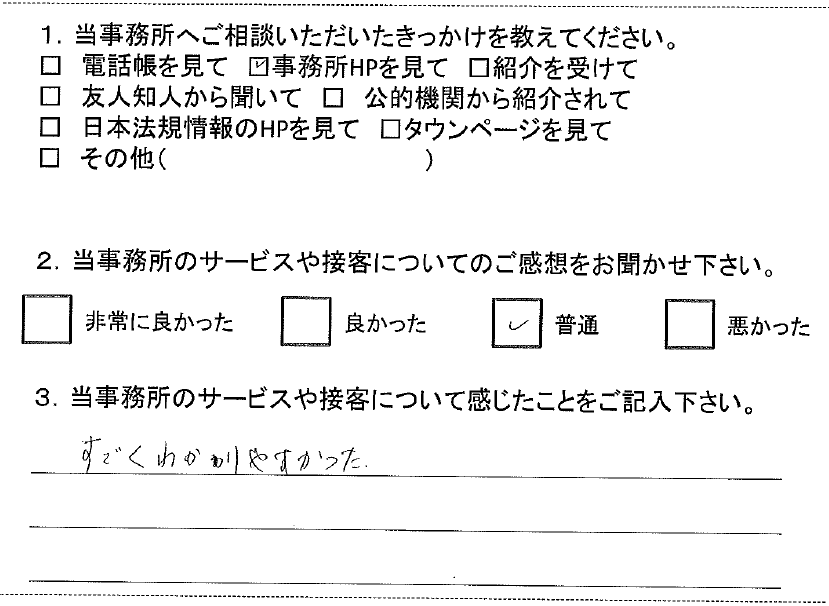 1. 当事務所へご相談いただいたきっかけを教えてください。
□ 電話帳を見て ☑事務所HPを見て □紹介を受けて
□ 友人知人から聞いて □ 公的機関から紹介されて
□ 日本法規情報のHPを見て □タウンページを見て
□ その他( )
2. 当事務所のサービスや接客についてのご感想をお聞かせ下さい。
□ 非常に良かった □ 良かった ☑ 普通 □ 悪かった
3. 当事務所のサービスや接客について感じたことをご記入下さい。
すごくわかりやすかった.